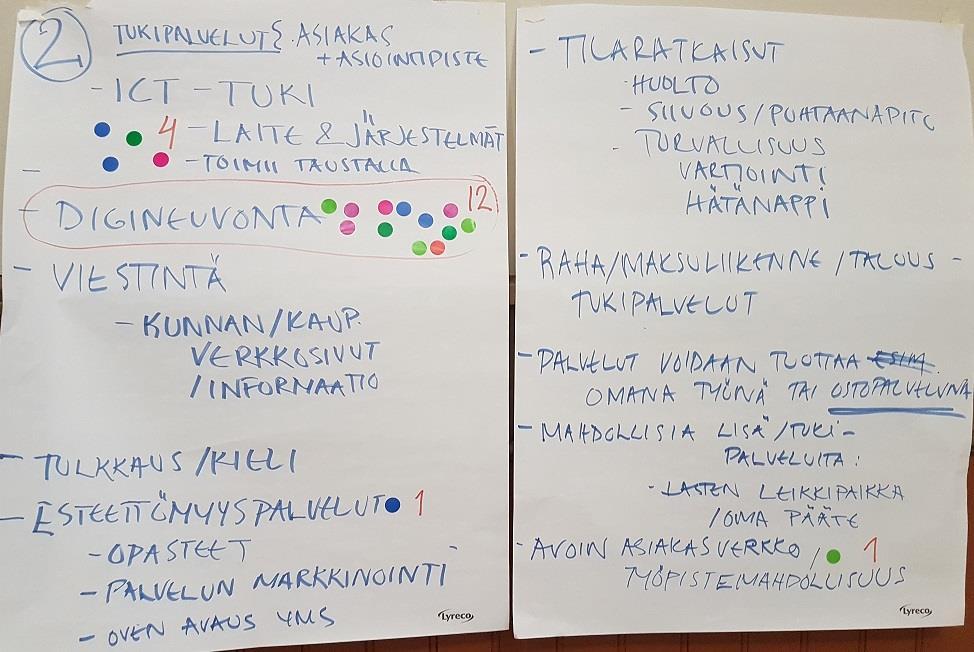 2 TUKIPALVELUT ASIAKAS
+ ASIOINTIPISTE
- ICT - TUKI
4 - LAITE & JÄRJESTELMÄT
- TOIMII TAUSTALLA
- DIGINEUVONTA 12
- VIESTINTÄ
- KUNNAN/KAUP.
VERKKOSIVUT
/INFORMAATIO
- TULKKAUS/KIELI
- ESTEETTÖMYYSPALVELUT 1
- OPASTEET
- PALVELUN MARKKINOINTI
- OVEN AVAUS YMS
Lyreco
- TILARATKAISUT
- HUOLTO
- SIIVOUS/PUHTAANAPITO
- TURVALLISUUS
VARTIOINTI
HÄTÄNAPPI
- RAHA/MAKSULIIKENNE/TALOUS -
TUKIPALVELUT
- PALVELUT VOIDAAN TUOTTAA ESIM.
OMANA TYÖNÄ TAI OSTOPALVELUNA
- MAHDOLLISIA LISÄ/TUKI-
PALVELUITA:
- LASTEN LEIKKIPAIKKA
/OMA PÄÄTE
- AVOIN ASIAKASVERKKO/ 1
TYÖPISTEMAHDOLLISUUS
Lyreco